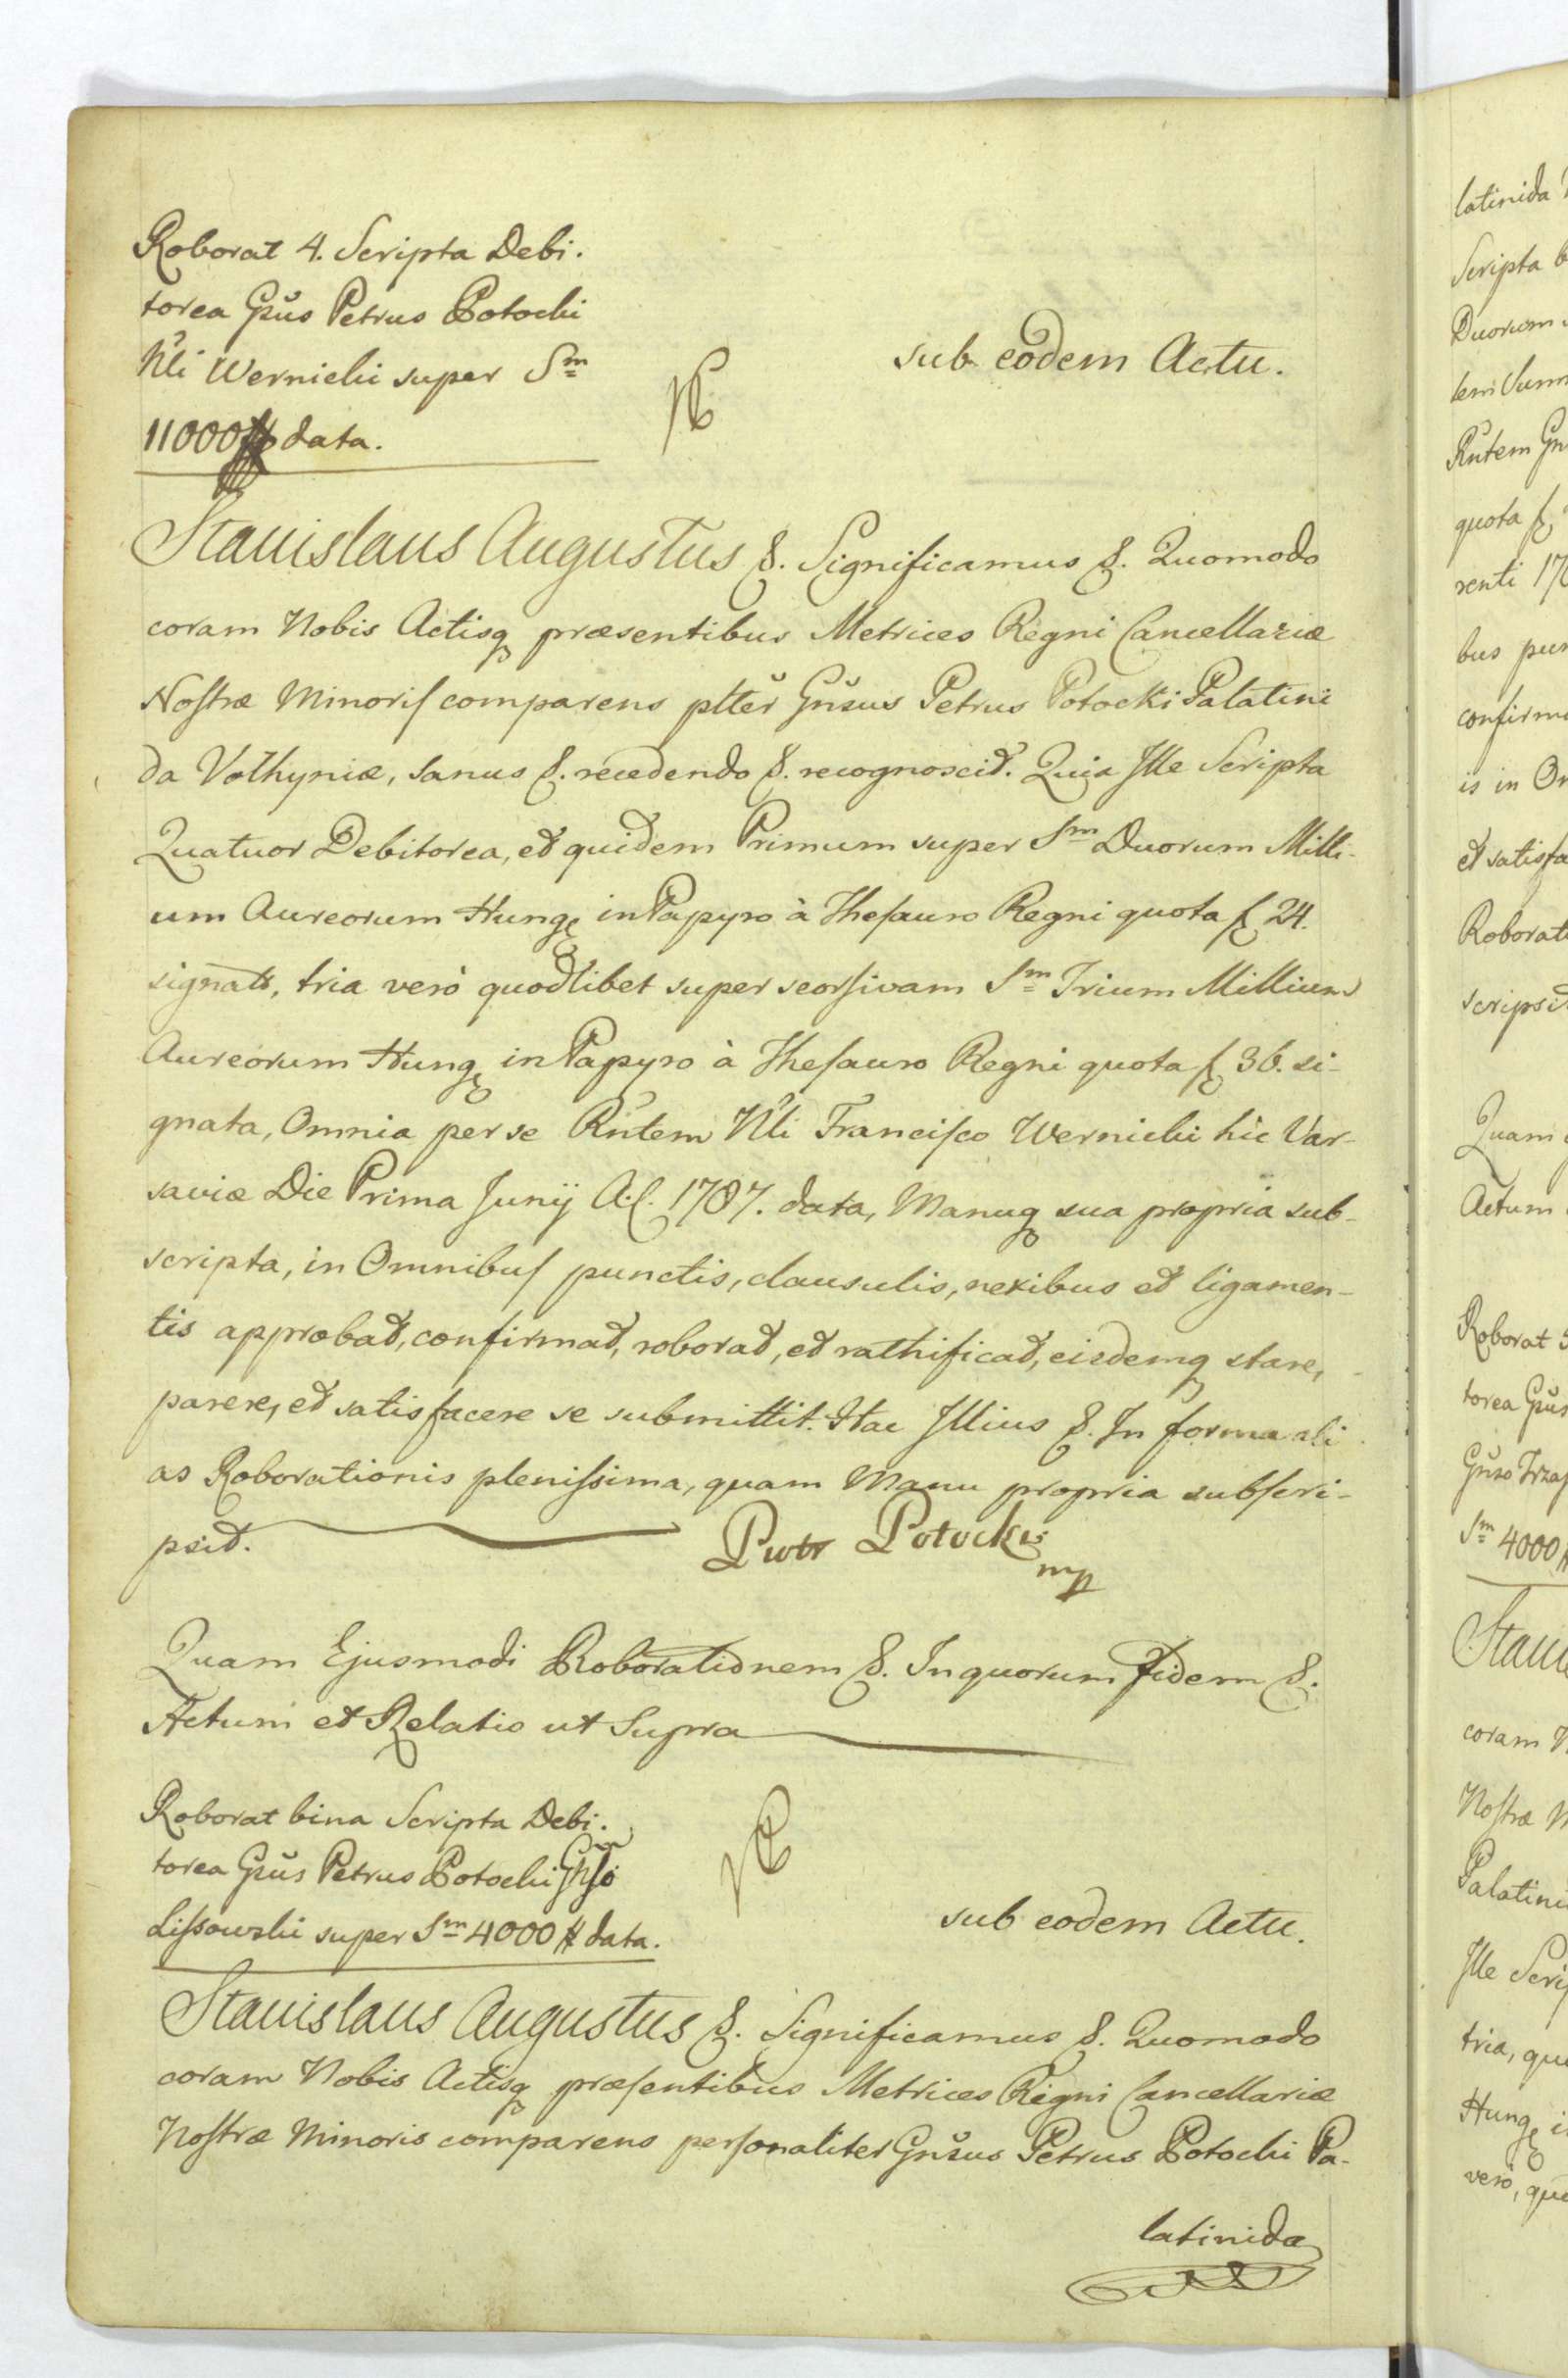 Roborat 4. Scripta Debi.
torea Gsus Petrus Potocki
Nli Wernicki super Sm
11000 # data.
sub eodem Actu.
Stanislaus Augustus &. Significamus &. Quomodo
coram Nobis Actisq præsentibus Metrices Regni Cancellariæ
Nostræ Minoris comparens pltter Gnsus Petrus Potocki Palatini
da Volhyniæ, sanus &. recedendo &. recognoscit. Quia Ille Scripta
Quatuor Debitorea, et quidem Primum super Sm Duorum Milli-
um Aureorum Hung in Papyro à Thesauro Regni quota f 24.
signato, tria verò quodlibet super seorsivam Sm Trium Millium
Aureorum Hung in Papyro à Thesauro Regni quota f 36. si-
gnata, Omnia per se Rntem Nli Francisco Wernicki hic Var-
saviæ Die Prima Junij A.C. 1787. data, Manuq sua propria sub-
scripta, in Omnibus punctis, clausulis, nexibus et ligamen-
tis approbat, confirmat, roborat, et rathificat, eisdemq stare,
parere, et satisfacere se submittit. Hac Illius &. In forma ali
as Roborationis plenissima, quam Manu propria subscri-
psit. Piotr Potocki mp
Quam Ejusmodi Roborationem &. In quorum fidem &.
Actum et Relatio ut Supra
Roborat bina Scripta Debi.
torea Gsus Petrus Potocki Gnso
Lissowski super Sm 4000 # data.
sub eodem Actu.
Stanislaus Augustus &. Significamus &. Quomodo
coram Nobis Actisq præsentibus Metrices Regni Cancellariæ
Nostræ Minoris comparens personaliter Gnsus Petrus Potocki Pa-
latinida
latinida
Scripta
Duorum
Rntem
quota f
renti
bus
confirma
is in
et satisfa
Roborati
scripsit
Quam
Actum
Roborat
torea Gsus
Gnso
Sm 4000
Stanis
coram
Nostræ
Palatini
Ille Scrip
tria, quo
Hung
verò, quo